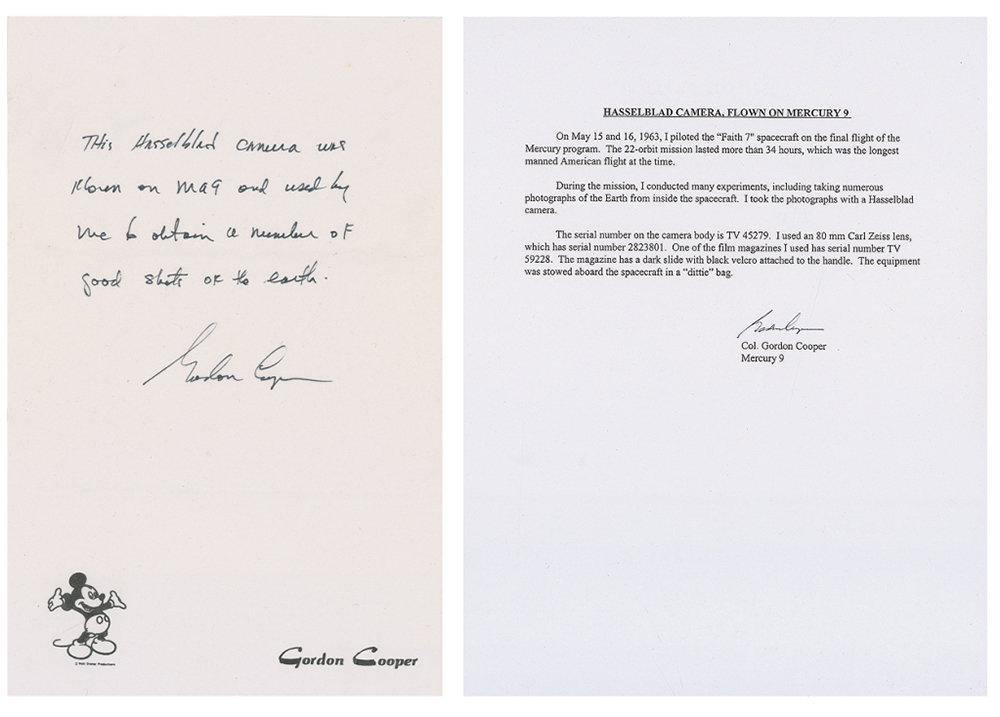 This Hasselblad camera was
flown on MA9 and used by
me to obtain a number of
good shots of the earth.
Gordon Cooper
© Walt Disney Productions
Gordon Cooper
HASSELBLAD CAMERA, FLOWN ON MERCURY 9
On May 15 and 16, 1963, I piloted the "Faith 7" spacecraft on the final flight of the
Mercury program. The 22-orbit mission lasted more than 34 hours, which was the longest
manned American flight at the time.
During the mission, I conducted many experiments, including taking numerous
photographs of the Earth from inside the spacecraft. I took the photographs with a Hasselblad
camera.
The serial number on the camera body is TV 45279. I used an 80 mm Carl Zeiss lens,
which has serial number 2823801. One of the film magazines I used has serial number TV
59228. The magazine has a dark slide with black velcro attached to the handle. The equipment
was stowed aboard the spacecraft in a "dittie" bag.
Gordon Cooper
Col. Gordon Cooper
Mercury 9